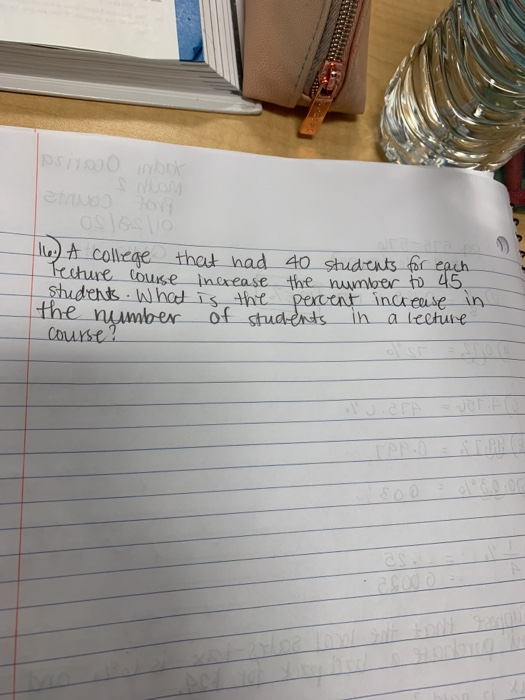 16.) A college that had 40 students for each
lecture course increase the number to 45
students. What is the percent increase in
the number of students in a lecture
course?